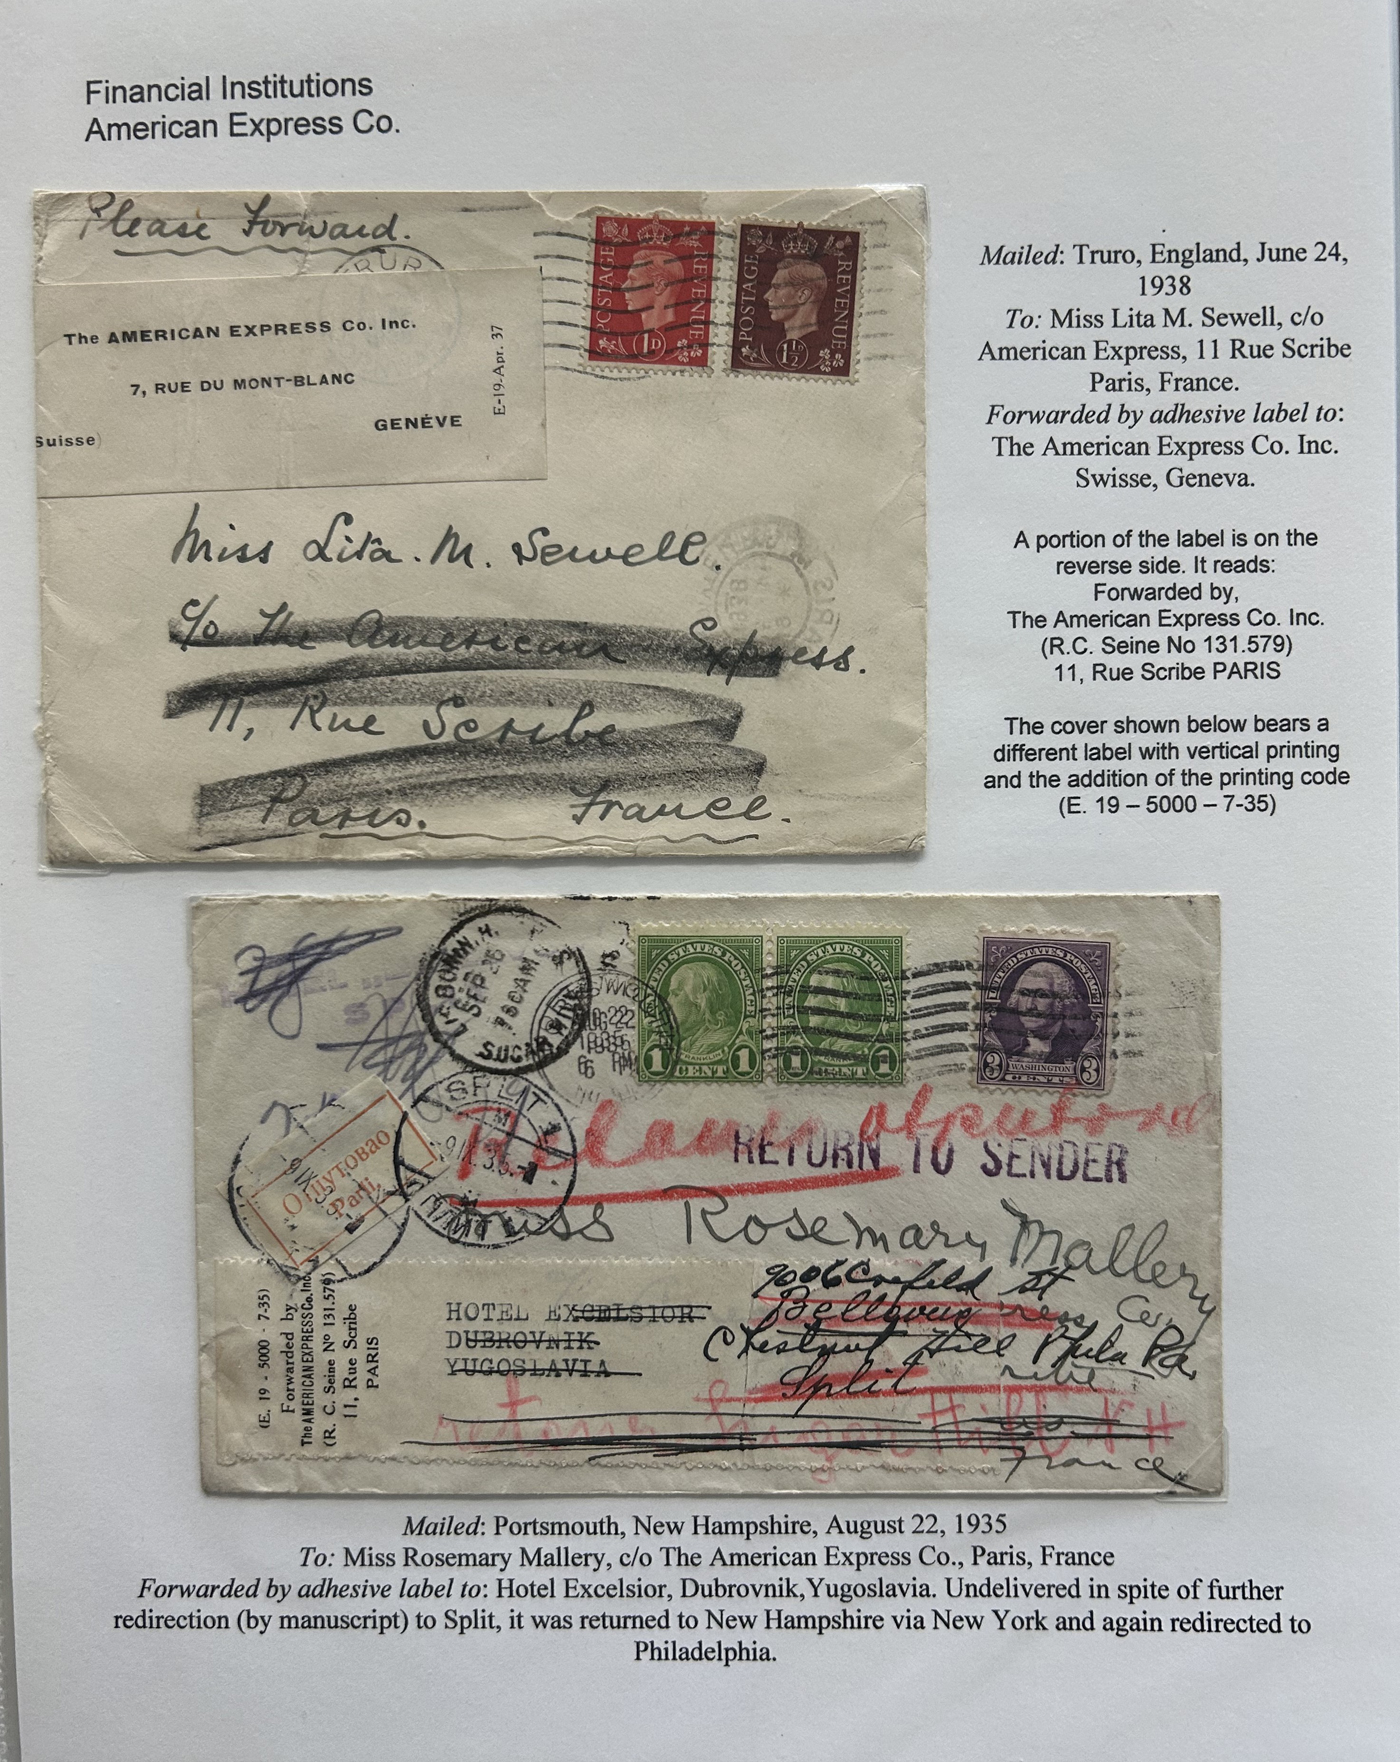 Financial Institutions
American Express Co.
Please Forward.
BUR
The AMERICAN EXPRESS Co. Inc.
7, RUE DU MONT-BLANC
GENÈVE
Suisse)
E-19-Apr. 37
POSTAGE REVENUE
1D
POSTAGE REVENUE
1½D
Miss Lita. M. Sewell.
c/o The American Express.
11, Rue Scribe
Paris. France.
Mailed: Truro, England, June 24,
1938
To: Miss Lita M. Sewell, c/o
American Express, 11 Rue Scribe
Paris, France.
Forwarded by adhesive label to:
The American Express Co. Inc.
Swisse, Geneva.
A portion of the label is on the
reverse side. It reads:
Forwarded by,
The American Express Co. Inc.
(R.C. Seine No 131.579)
11, Rue Scribe PARIS
The cover shown below bears a
different label with vertical printing
and the addition of the printing code
(E. 19 – 5000 – 7-35)
SEP 26
AUG 22
1935
UNITED STATES POSTAGE
1 FRANKLIN 1
CENT
UNITED STATES POSTAGE
1 FRANKLIN 1
CENT
UNITED STATES POSTAGE
3 WASHINGTON 3
CENTS
SPLIT 1
Отпутовао
Parti
RETURN TO SENDER
Miss Rosemary Mallery
9006 Crefeld St
Bellevue
Chestnut Hill Phila Pa
Split
France
HOTEL EXCELSIOR
DUBROVNIK
YUGOSLAVIA
return Sugar Hill N H
(E. 19 - 5000 - 7-35)
Forwarded by
The AMERICAN EXPRESS Co. Inc.
(R. C. Seine Nº 131.579)
11, Rue Scribe
PARIS
Mailed: Portsmouth, New Hampshire, August 22, 1935
To: Miss Rosemary Mallery, c/o The American Express Co., Paris, France
Forwarded by adhesive label to: Hotel Excelsior, Dubrovnik,Yugoslavia. Undelivered in spite of further
redirection (by manuscript) to Split, it was returned to New Hampshire via New York and again redirected to
Philadelphia.